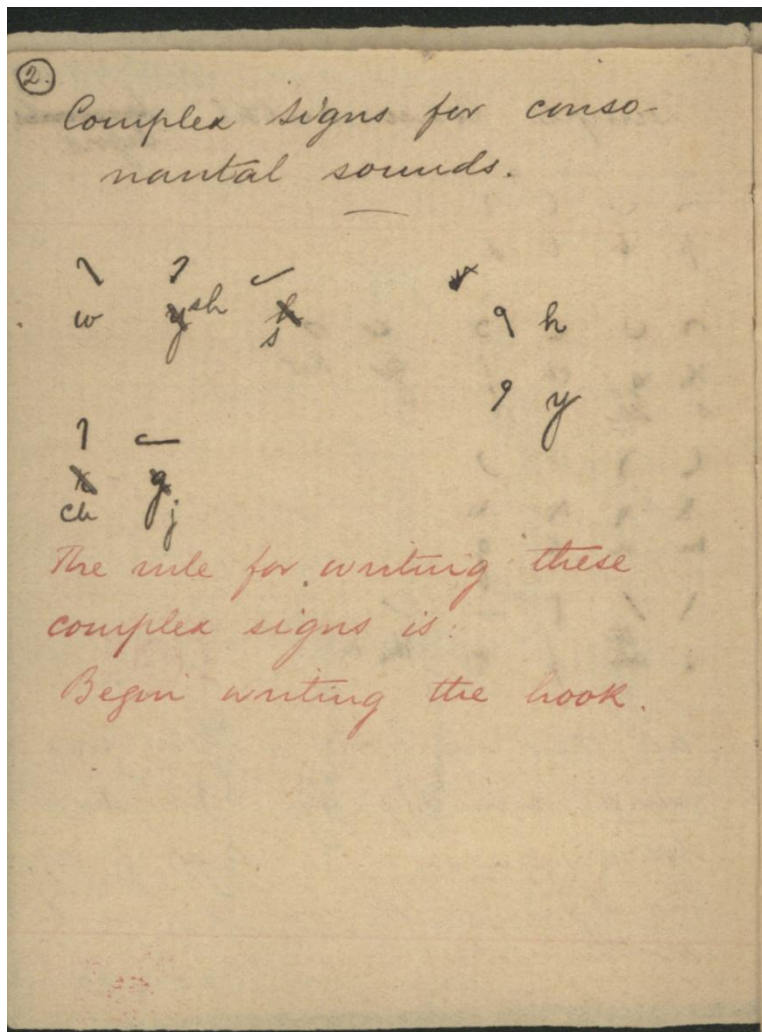 2.
Complex signs for conso-
nantal sounds.
w sh s
h
y
ch j
The rule for writing these
complex signs is:
Begin writing the hook.